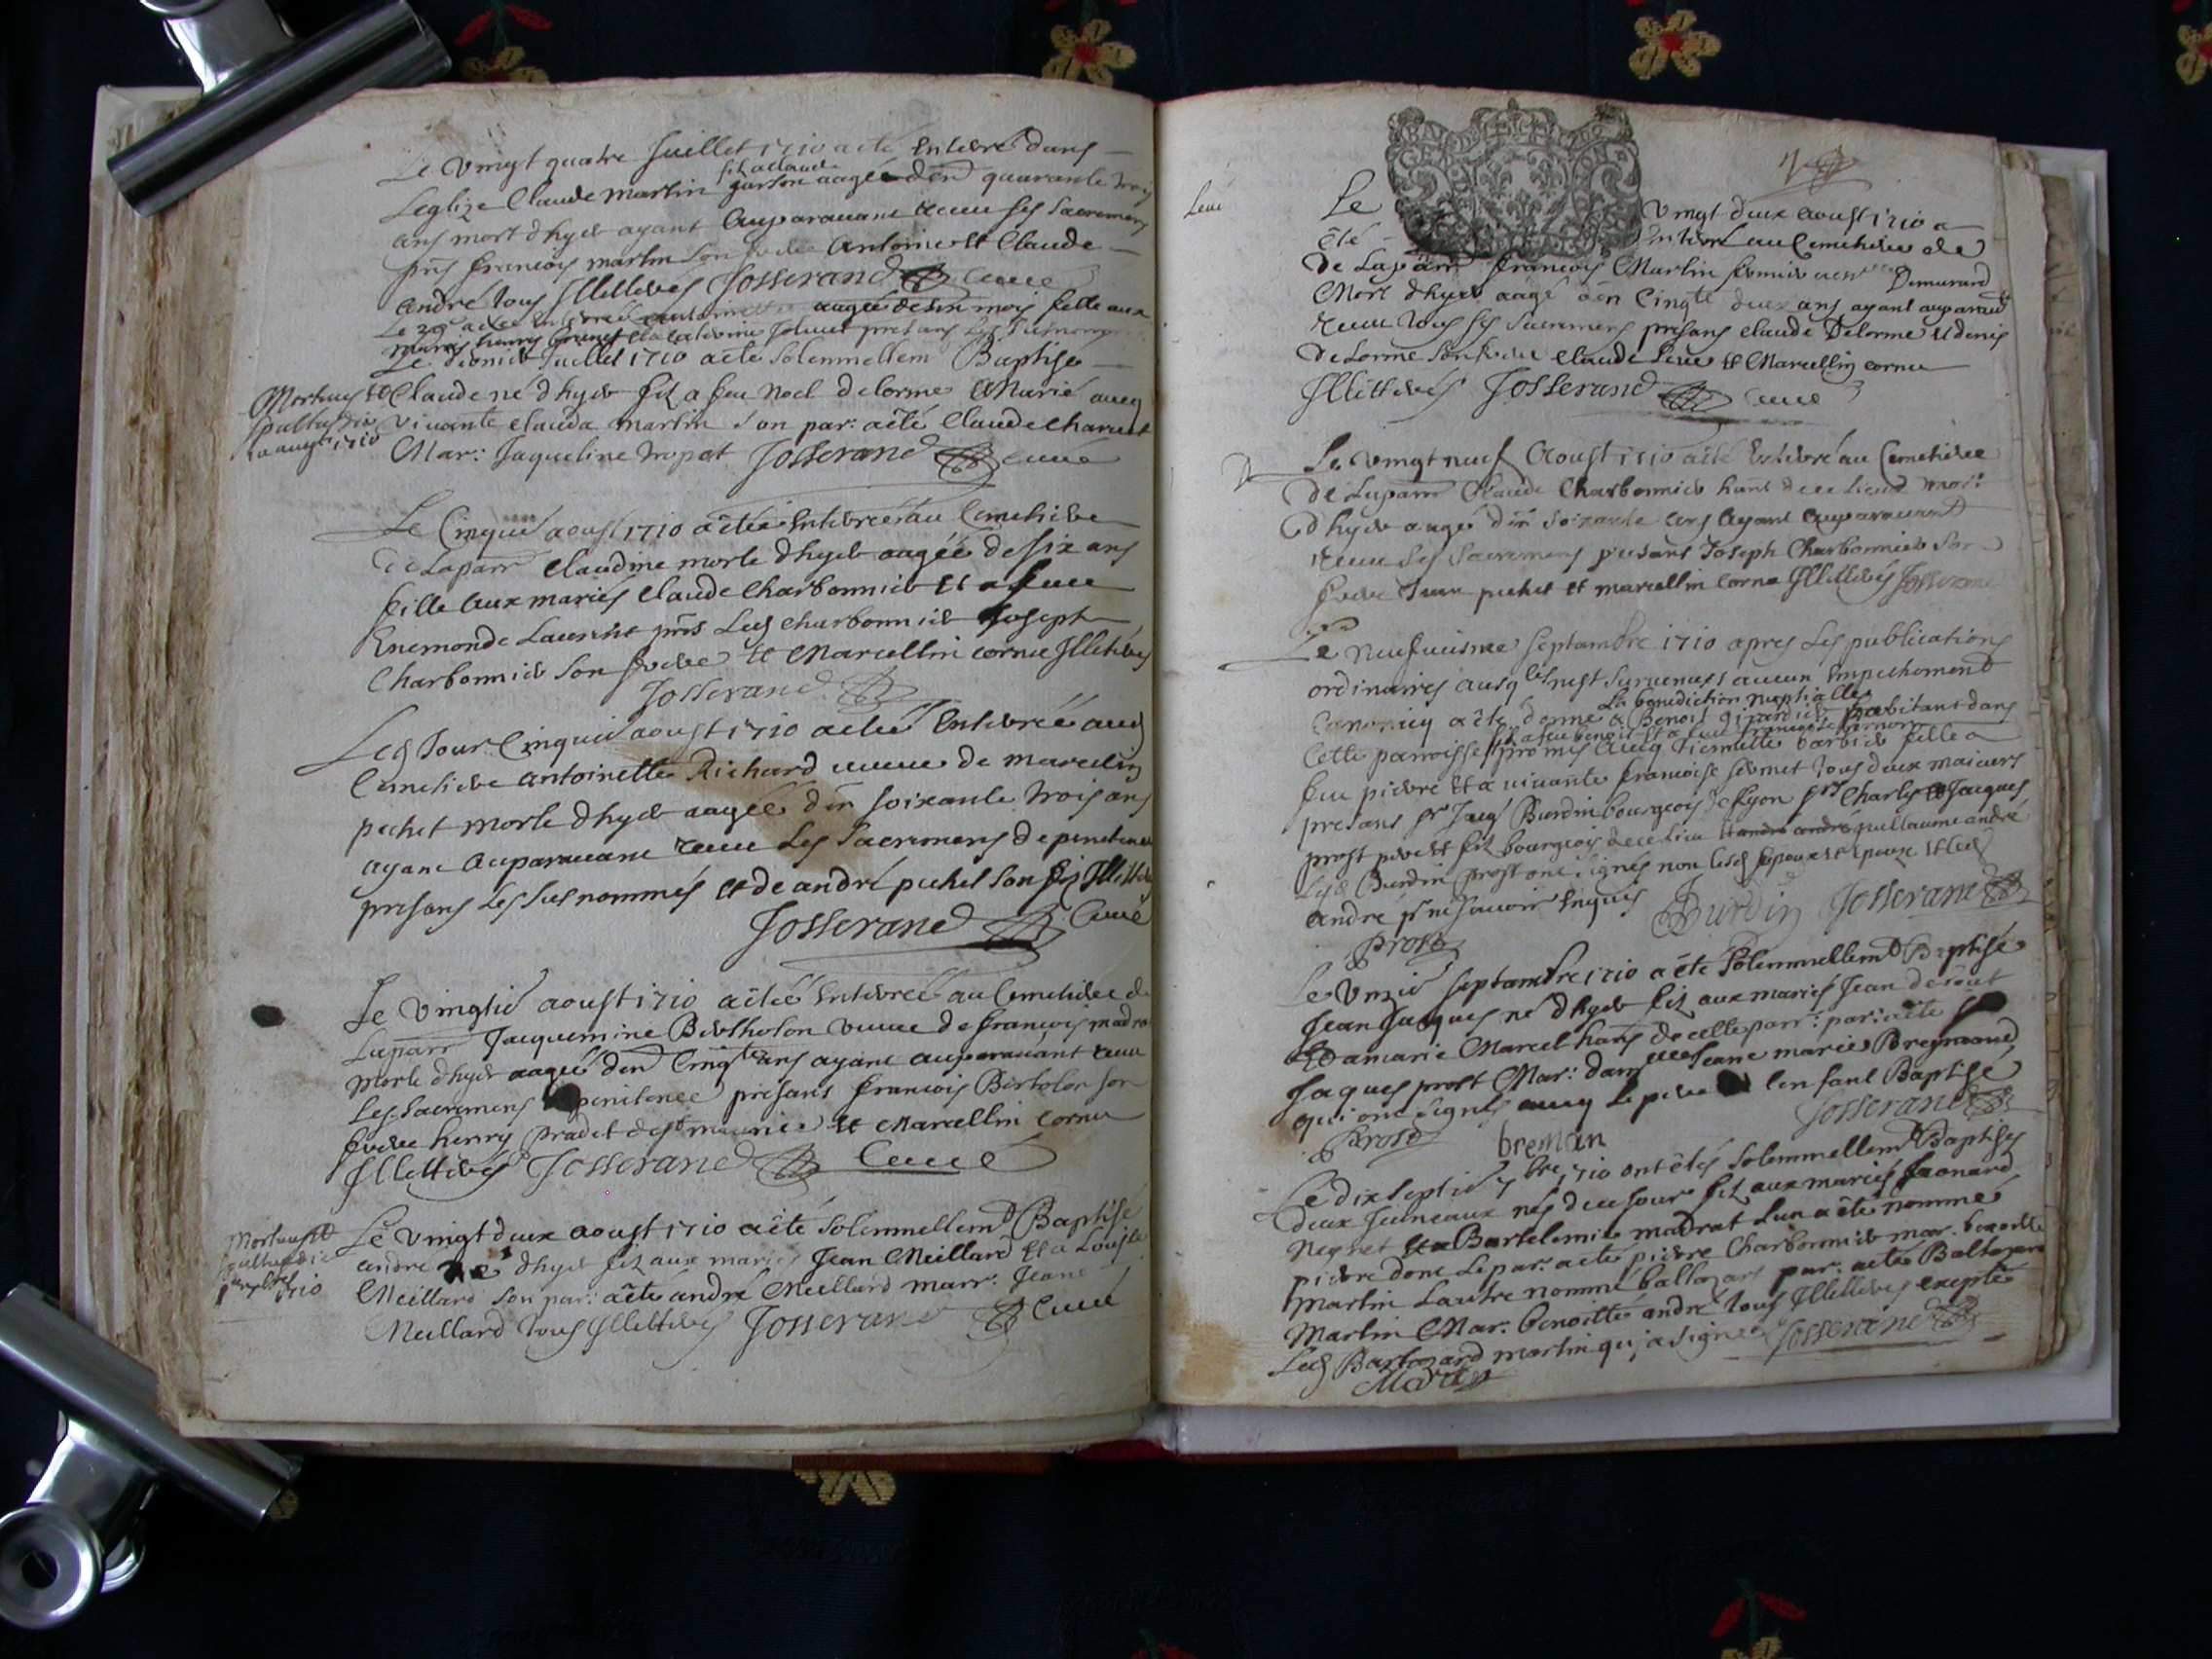 Le vingt quatre Juillet 1710 a été Enterré dans
filz a claude
Leglize Claude martin garson aagé d'en quarante trois
ans mort dhyer ayant Auparauant receu ses Sacremens
pñs francois martin son frere Antoine et Claude
andré tous Illitterés Josserand Curé
aagée de six mois fille aux
mariés henry
Le Juillet 1710 a été Solemnellem Baptisé
Claude né d'hyer filz a feu Noel delorme Marié auec
viuante clauda martin son par: a été Claude Charuet
Mar: Jaqueline tropat Josserand curé
Mortuus et
sepultus die
10 augti 1710
Le Cinquié aoust 1710 a étée Enterrée au Cemetiere
de Laparr Claudine morte dhyer aagée de six ans
fille aux mariés Claude Charbonnier et a feue
Enemonde Laurent pñs Led Charbonnier Joseph
Charbonnier son frere et Marcellin cornu Illiterés
Josserand
Led Jour Cinquié aoust 1710 a étée Enterrée aud
Cemetiere antoinette Richard veuue de marcelin
pechet morte dhyer aagée d'en soixante trois ans
ayant Auparauant receu Les Sacremens de penitence
presans Les susnommés et de andré pechet son filz Illitteré
Josserand Curé
Le vingtié aoust 1710 a étée Enterrée au Cemetiere de
Laparr Jacquemine Bertholon veuue de francois madra
morte dhyer aagée d'en Cinqte ans ayant auparauant receu
Les Sacremens penitence presans francois Bertolon son
frere henry pradet de st maurice et Marcellin cornu
Illitterés Josserand Curé
Le vingt deux aoust 1710 a été Solemnellemt Baptisé
andre né dhyer filz aux mariés Jean Meillard et a Louise
Meillard son par: a été andré Meillard marr: Jeane
Meillard tous Illitterés Josserand Curé
Mortuus et
sepultus die
7bris
1710
Leué
Le vingt deux aoust 1710 a
été Enterré au Cemetiere de
de Laparr francois Martin fermier Demurard
Mort dhyer aagé d'en Cinqte deux ans ayant auparaut
receu tous ses Sacremens presans claude Delorme et denis
de Lorme son frere claude et Marcellin cornu
Illitterés Josserand curé
Le vingt neuf Aoust 1710 a été Enterré au Cemetiere
de Laparr Claude Charbonnier hant de ce Lieu mort
dhyer aagé d'en soixante ans ayant Auparauant
receu Ses Sacremens presans Joseph Charbonnier Son
frere Jean pechet et marcellin cornu Illitterés Josserand
Le neufuiesme Septambre 1710 apres Les publications
ordinaires ausqles nest suruenus aucun Empechement
La benediction nuptialle
Canonicq a été donné a Benoit girardier habitant dans
filz a feu benoit et a feue francoise
Cette paroisse promis Auec Pierrette barbier fille a
feu pierre et a viuante francoise tous deux majeurs
presans sr Jacq Burdin bourgeois de Lyon srs Charles et Jaques
prost pere et filz bourgeois de ce Lieu guillaume andré
Lesd Burdin prost ont signés non lesd Epoux et Epouse et Led
andré pr ne scauoir Enquis Burdin Josserand
Prost
Le vnzié Septambre 1710 a été Solemnellemt Baptisé
Jean Jaques né dhyer filz aux mariés Jean
Et a marie Marcel hants de cette parr: par: a été sr
Jaques prost Mar: damlle Jeane marie Bregmand
qui ont signés auec Le pere de Lenfant Baptisé
Prost breman Josserand
Le dix septié 7bre 1710 ont étés Solemnellemt Baptisés
deux Jumeaux nés de ce Jour filz aux mariés Leonard
Negret et a Bartelemie madrat Lun a été nommé
pierre dont Le par: a été pierre Charbonnier mar: benoitte
martin Lautre nommé baltazart par: a été Baltazard
Martin Mar: benoitte andre tous Illitterés exepté
Led Bartazard martin qui a signé Josserand
Martin